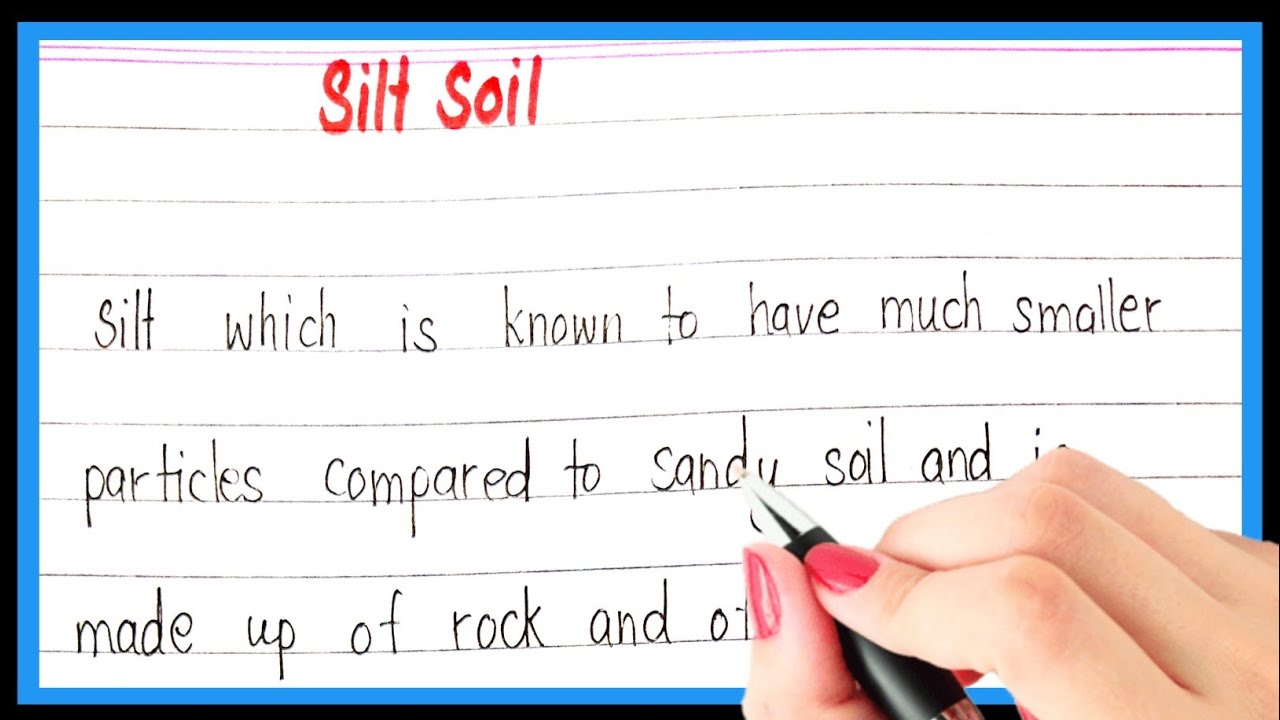 Silt Soil
Silt which is known to have much smaller
particles compared to sandy soil and
made up of rock and